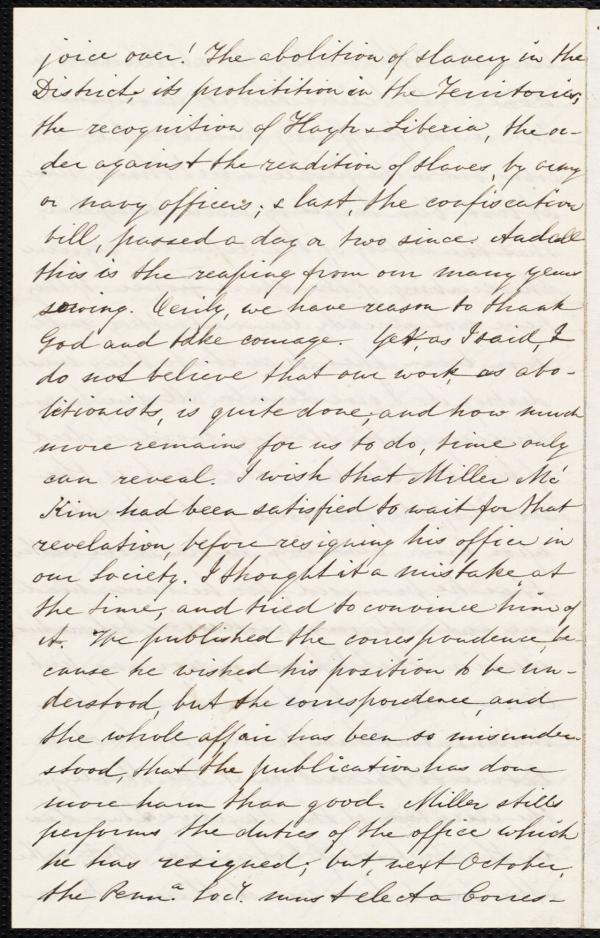 joice over! The abolition of slavery in the
District, its prohibition in the Territories,
the recognition of Hayti & Liberia, the or-
der against the rendition of slaves, by army
or navy officers; & last, the confiscation
bill, passed a day or two since. And all
this is the reaping from our many years
sowing. Verily, we have reason to thank
God and take courage. Yet, as I said, I
do not believe that our work, as abo-
litionists, is quite done; and how much
more remains for us to do, time only
can reveal. I wish that Miller Mc
Kim had been satisfied to wait for that
revelation, before resigning his office in
our Society. I thought it a mistake, at
the time, and tried to convince him of
it. We published the correspondence, be-
cause he wished his position to be un-
derstood, but the correspondence, and
the whole affair has been so misunder-
stood, that the publication has done
more harm than good. Miller still
performs the duties of the office which
he has resigned; but, next October,
the Penna. Socy. must elect a Corres-